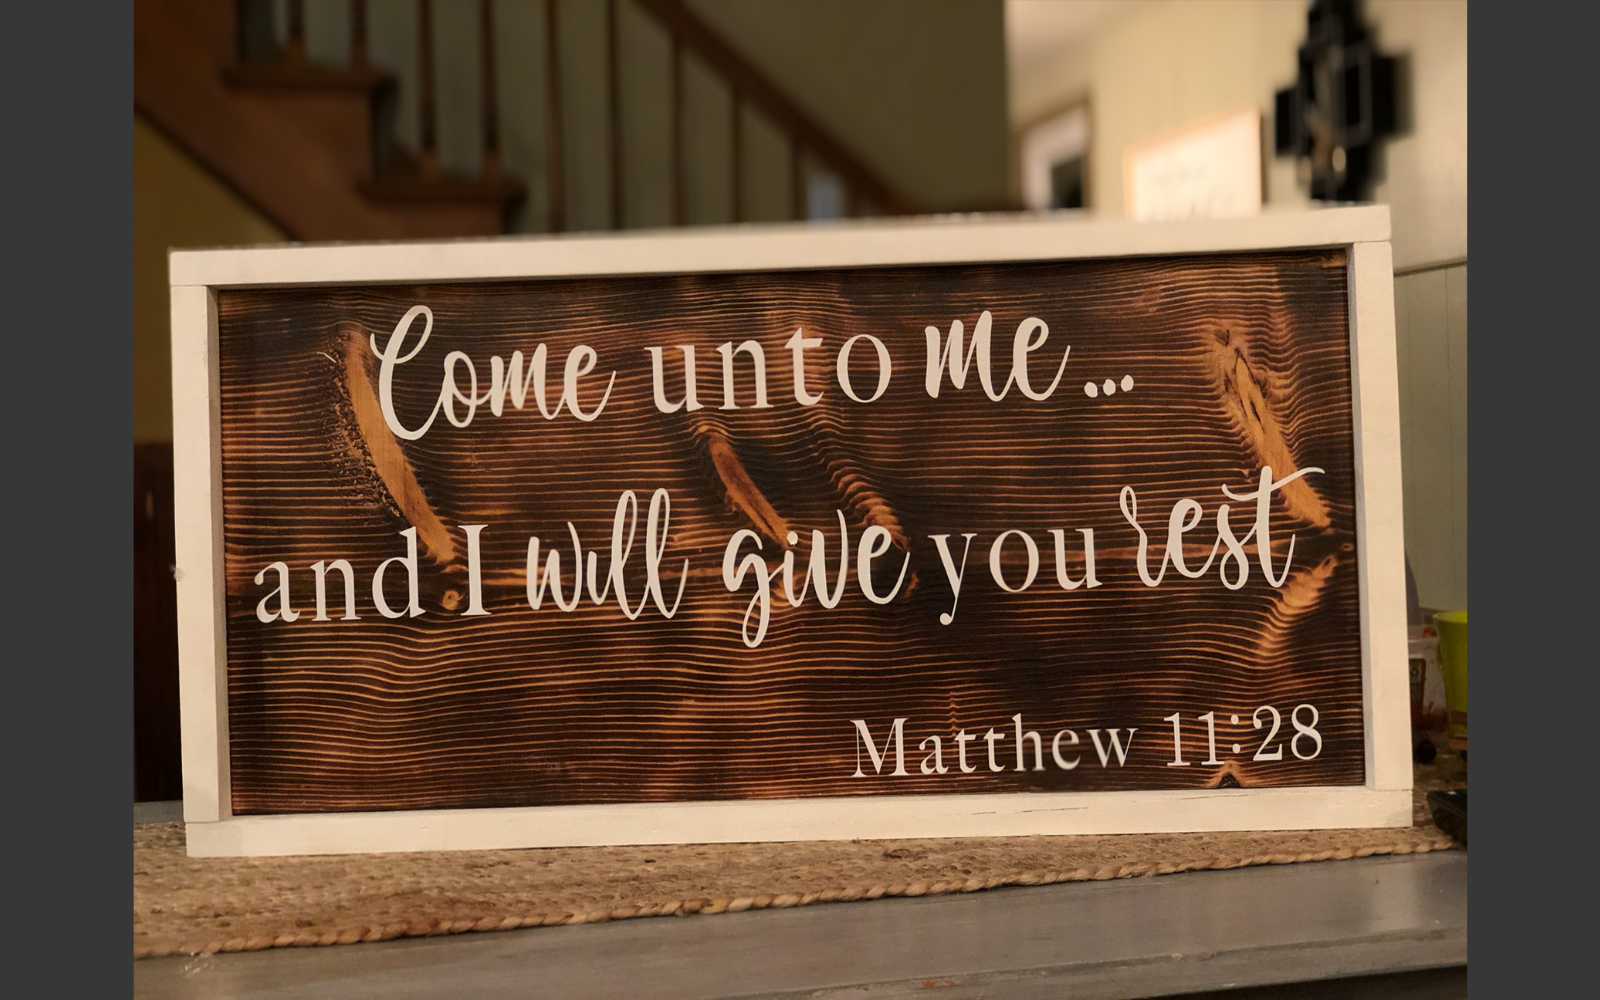 Come unto me...
and I will give you rest
Matthew 11:28